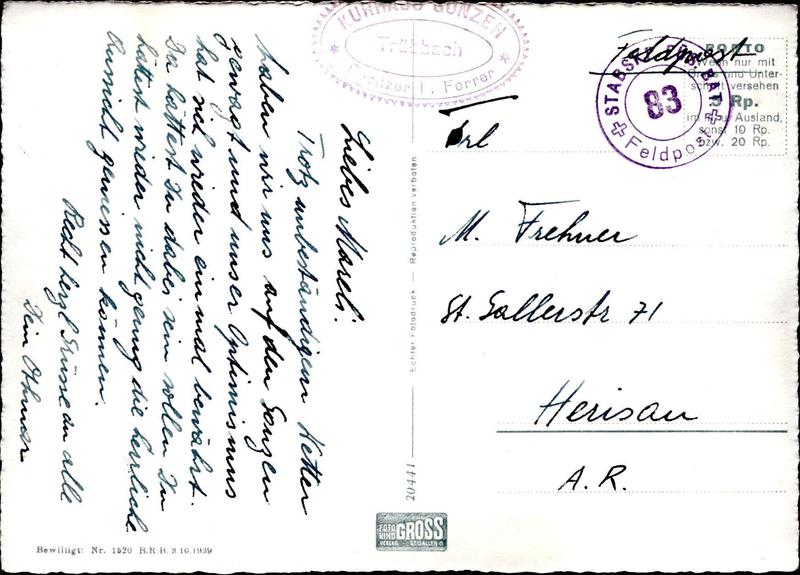 KURHAUS GONZEN
Trübbach
Besitzer J. Forrer
Liebes Mareli!
Trotz unbeständigem Wetter
haben wir uns auf den Gonzen
gewagt und unser Optimismus
hat sich wieder einmal bewährt.
Du hättest Du dabei sein sollen. Du
hättest wieder nicht genug die herrliche
Aussicht geniessen können.
Recht herzl. Grüsse an alle
Dein Othmar
Bewilligt: Nr. 1520 B.R.B. 3.10.1939
Echter Fotodruck — Reproduktion verboten
20441
FOTO
KIND
VERLAG
GROSS
ST. GALLEN
Feldpost
PORTO
Wenn nur mit
Gruss und Unter-
schrift versehen
5 Rp.
im Ausland,
sonst 10 Rp.
bzw. 20 Rp.
BAT.
83
Feldpost
Frl
M. Frehner
St. Gallerstr 71
Herisau
A.R.